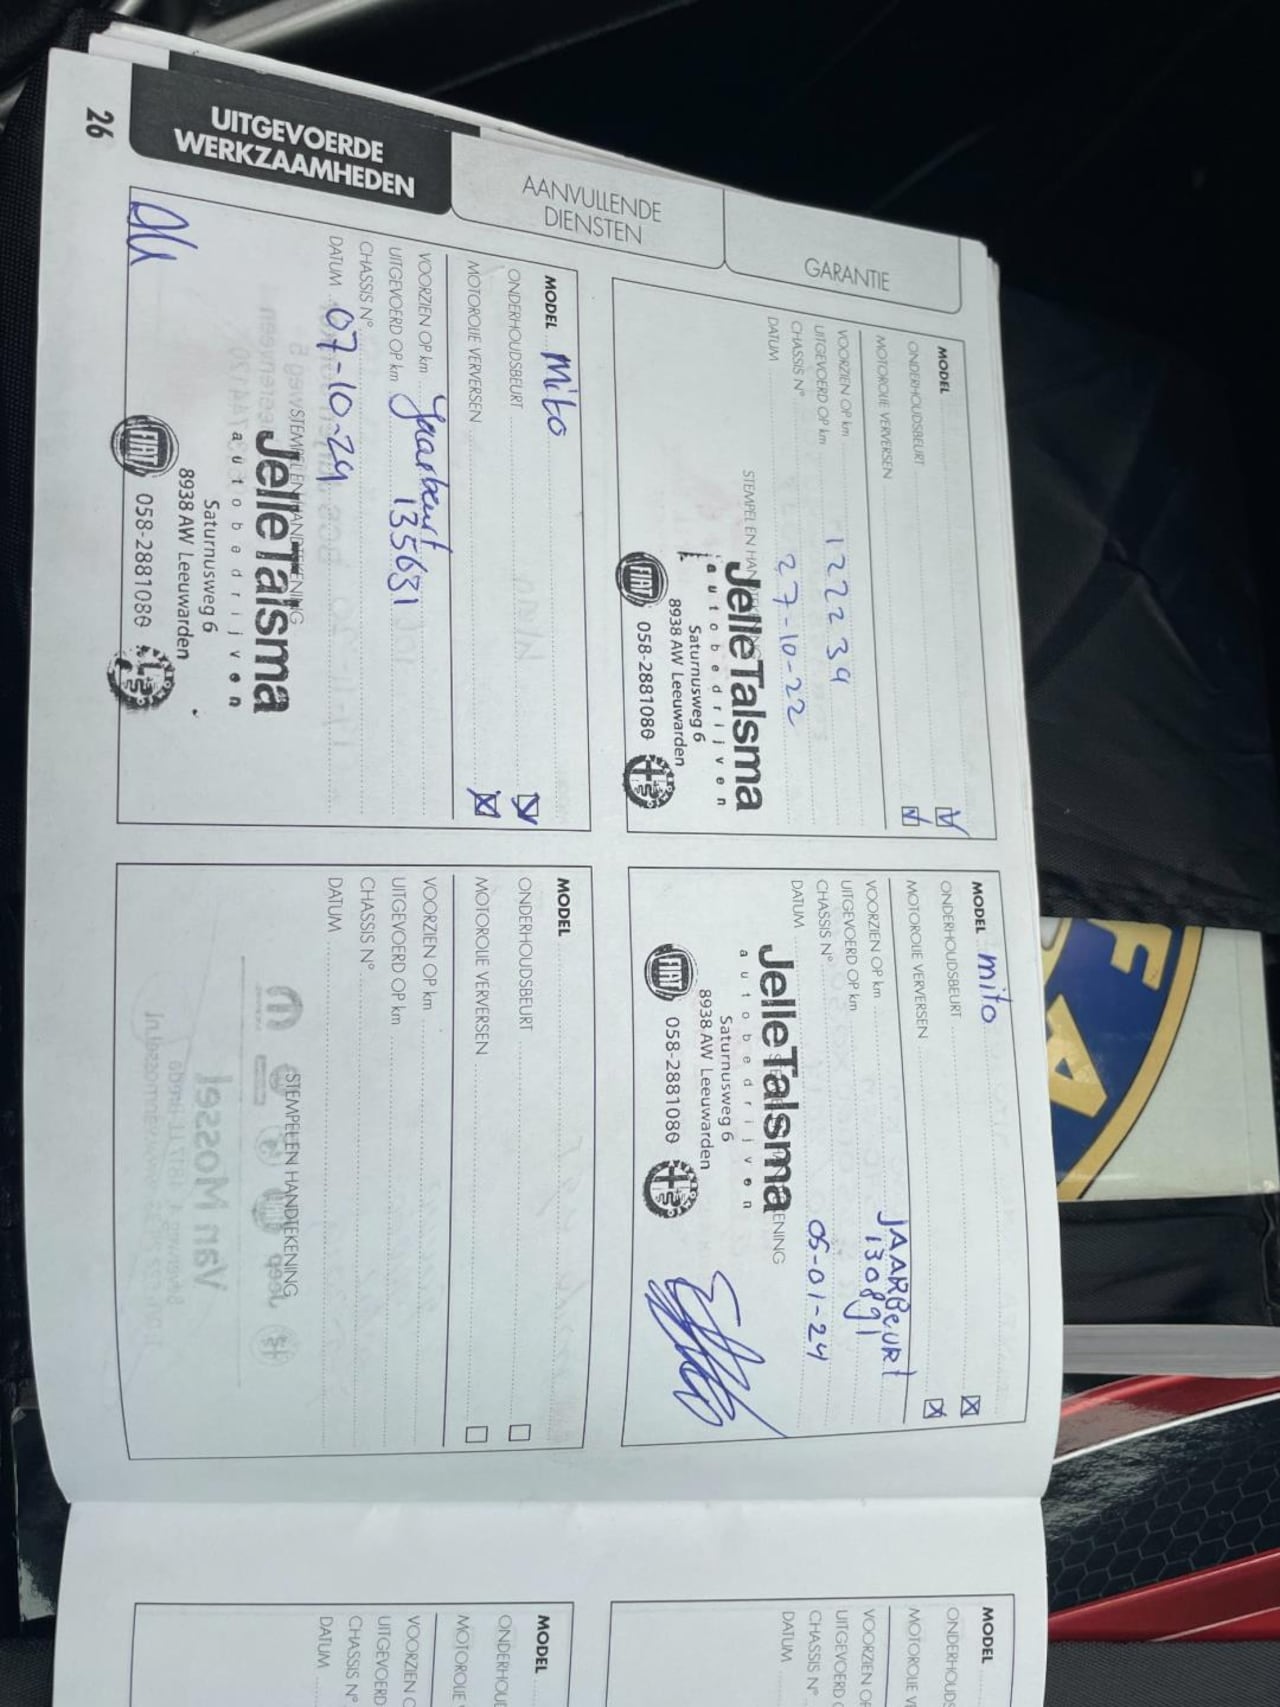 26
UITGEVOERDE
WERKZAAMHEDEN
AANVULLENDE
DIENSTEN
GARANTIE
MODEL
ONDERHOUDSBEURT
MOTOROLIE VERVERSEN
VOORZIEN OP km
UITGEVOERD OP km 122239
CHASSIS N°
DATUM 27-10-22
STEMPEL EN HAN
JelleTalsma
autobedrijven
Saturnusweg 6
8938 AW Leeuwarden
FIAT 058-2881080
MODEL mito
ONDERHOUDSBEURT
MOTOROLIE VERVERSEN
VOORZIEN OP km JAARBEURT
UITGEVOERD OP km 130891
CHASSIS N°
DATUM 05-01-24
JelleTalsma
autobedrijven
Saturnusweg 6
8938 AW Leeuwarden
FIAT 058-2881080
MODEL Mito
ONDERHOUDSBEURT
MOTOROLIE VERVERSEN
VOORZIEN OP km Jaarbeurt
UITGEVOERD OP km 135631
CHASSIS N°
DATUM 07-10-24
STEMPEL EN HANDTEKENING
JelleTalsma
autobedrijven
Saturnusweg 6
8938 AW Leeuwarden
FIAT 058-2881080
MODEL
ONDERHOUDSBEURT
MOTOROLIE VERVERSEN
VOORZIEN OP km
UITGEVOERD OP km
CHASSIS N°
DATUM
STEMPEL EN HANDTEKENING
MODEL
ONDERHOUDS
MOTOROLIE VE
VOORZIEN OP
UITGEVOERD O
CHASSIS N°
DATUM
MODEL
ONDERHOUD
MOTOROLIE
VOORZIEN O
UITGEVOERD
CHASSIS N°
DATUM
F A